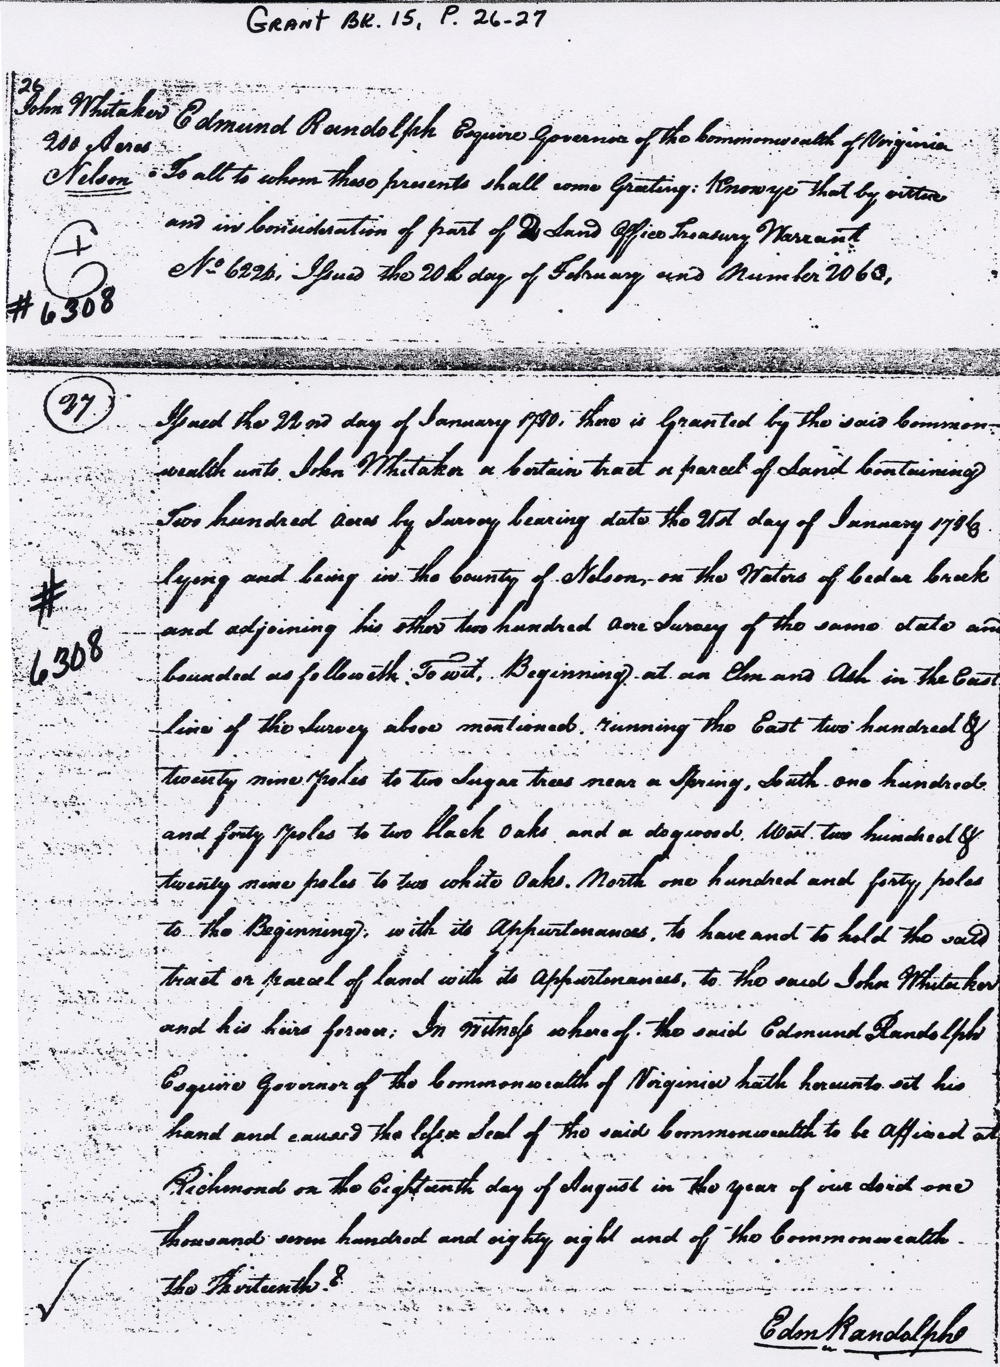 GRANT BK. 15, P. 26-27
26
John Whitaker
200 Acres
Nelson
# 6308
Edmund Randolph Esquire Governor of the Commonwealth of Virginia
To all to whom these presents shall come Greeting: Know ye that by virtue
and in Consideration of part of 2 Land Office Treasury Warrant
No Issued the 20th day of February and Number 2063,
27
# 6308
Issued the 22nd day of January 1780, there is Granted by the said Common-
wealth unto John Whitaker a Certain tract or parcel of Land Containing
Two hundred Acres by Survey bearing date the 21st day of January 1786
lying and being in the County of Nelson, on the Waters of Cedar Creek
and adjoining his other two hundred Acre Survey of the same date and
bounded as followeth, To wit, Beginning at an Elm and Ash in the East
line of the Survey above mentioned, running the East two hundred &
twenty nine poles to two Sugar trees near a Spring, South one hundred
and forty poles to two black Oaks and a dogwood, West two hundred &
twenty nine poles to two white Oaks, North one hundred and forty poles
to the Beginning; with its Appurtenances, to have and to hold the said
tract or parcel of land with its Appurtenances, to the said John Whitaker
and his heirs forever; In Witness whereof the said Edmund Randolph
Esquire Governor of the Commonwealth of Virginia hath hereunto set his
hand and caused the lesser Seal of the said Commonwealth to be Affixed at
Richmond on the Eighteenth day of August in the year of our Lord one
thousand seven hundred and eighty eight and of the Commonwealth
the Thirteenth.
Edm Randolph